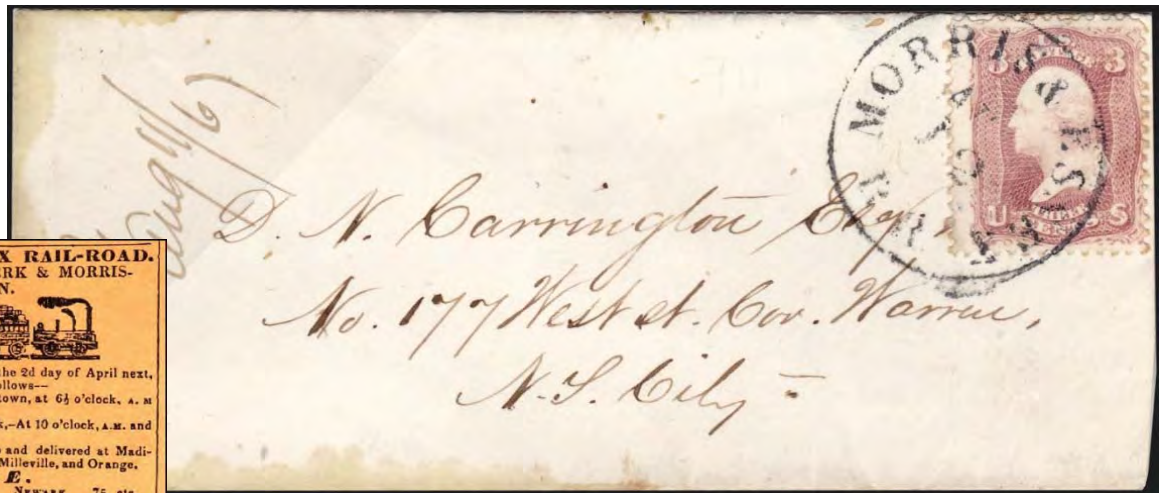 Aug 11/67
D. N. Carrington Esq,
No. 177 West st. Cor. Warren,
N. Y. City
MORRIS & ES
3
U S
X RAIL-ROAD.
RK & MORRIS-
N.
the 2d day of April next,
ollows--
town, at 6½ o'clock, A. M
k,-At 10 o'clock, A.M. and
and delivered at Madi-
Milleville, and Orange.
E.
NEWARK 75 cts